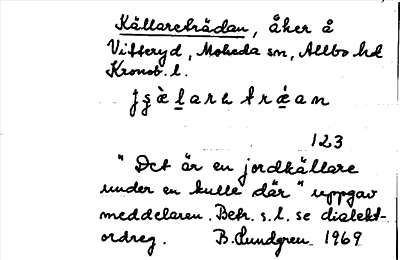 Källareträdan, åker å
Vitteryd, Moheda sn, Allbo hd
Kronob. l.
123
"Det är en jordkällare
under en kulle där" uppgav
meddelaren. Betr. s.l. se dialekt-
ordreg. B. Lundgren 1969